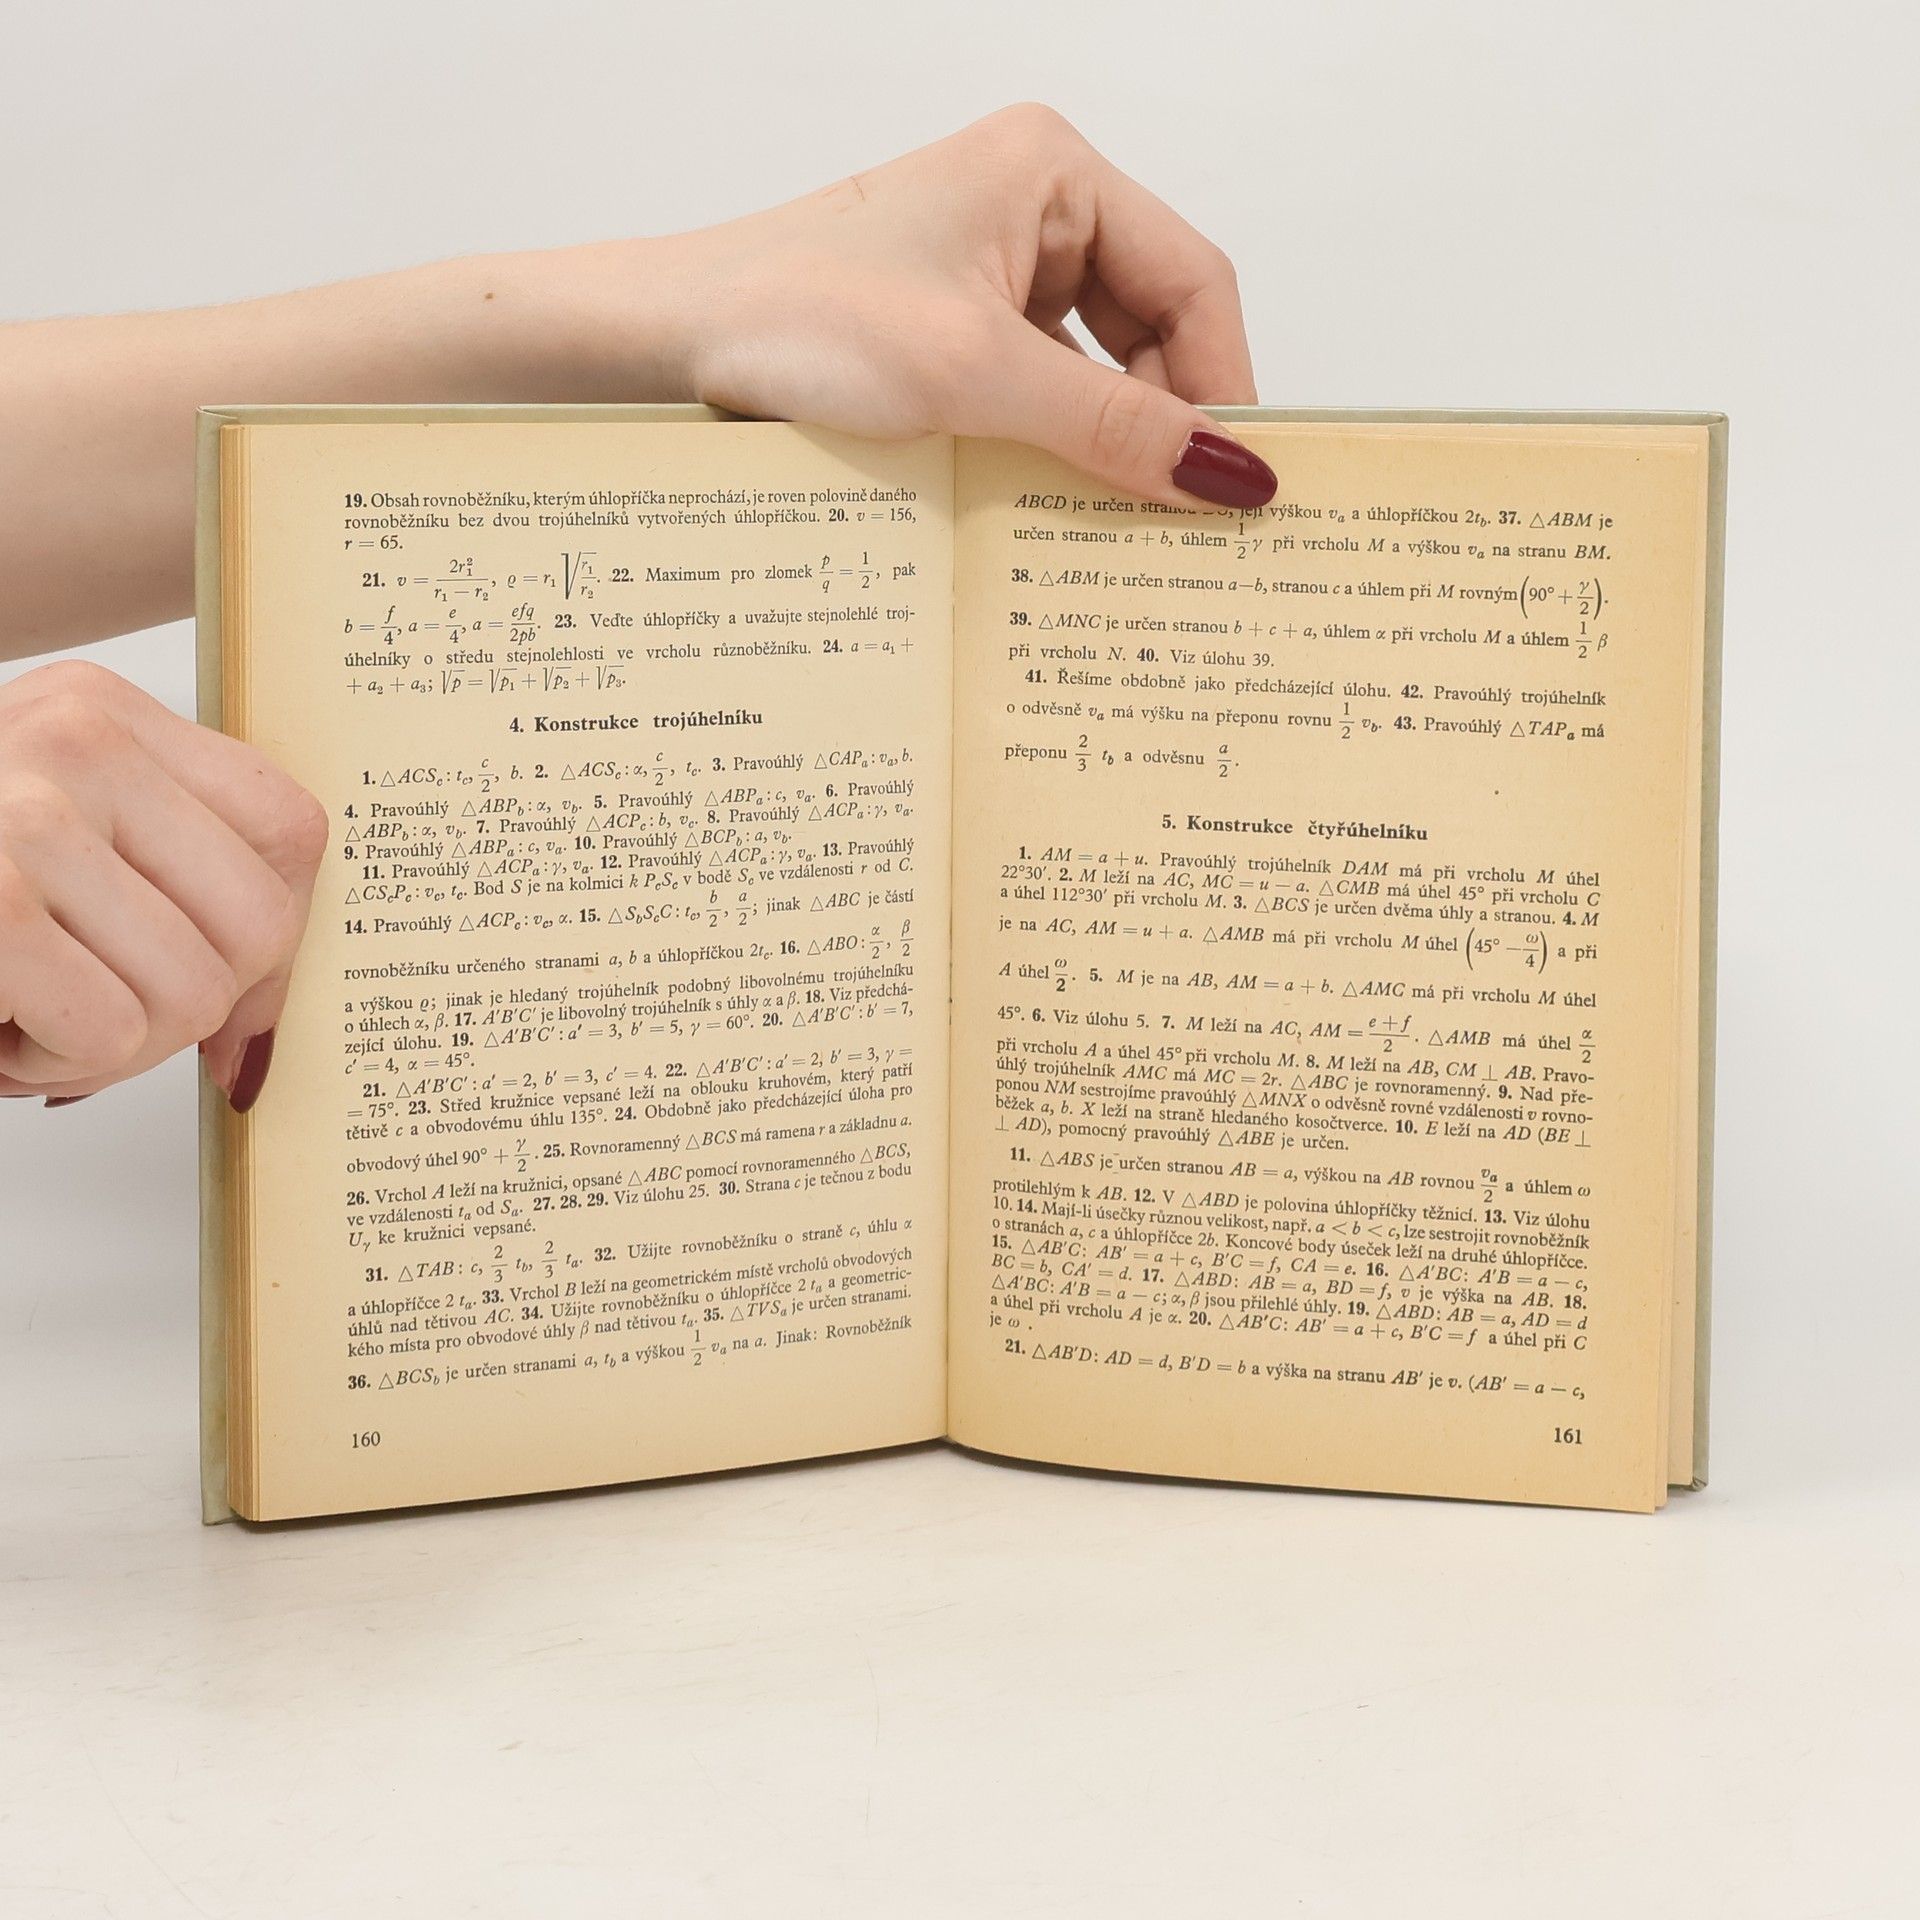 19. Obsah rovnoběžníku, kterým úhlopříčka neprochází, je roven polovině daného
rovnoběžníku bez dvou trojúhelníků vytvořených úhlopříčkou. 20. v = 156,
r = 65.
21. v = 2r₁²/(r₁ − r₂), ϱ = r₁ √(r₁/r₂). 22. Maximum pro zlomek p/q = 1/2, pak
b = f/4, a = e/4, a = efq/2pb. 23. Veďte úhlopříčky a uvažujte stejnolehlé troj-
úhelníky o středu stejnolehlosti ve vrcholu různoběžníku. 24. a = a₁ +
+ a₂ + a₃; √p = √p₁ + √p₂ + √p₃.
4. Konstrukce trojúhelníku
1. △ACS_c: t_c, c/2, b. 2. △ACS_c: α, c/2, t_c. 3. Pravoúhlý △CAP_a: v_a, b.
4. Pravoúhlý △ABP_b: α, v_b. 5. Pravoúhlý △ABP_a: c, v_a. 6. Pravoúhlý
△ABP_b: α, v_b. 7. Pravoúhlý △ACP_c: b, v_c. 8. Pravoúhlý △ACP_a: γ, v_a.
9. Pravoúhlý △ABP_a: c, v_a. 10. Pravoúhlý △BCP_b: a, v_b.
11. Pravoúhlý △ACP_a: γ, v_a. 12. Pravoúhlý △ACP_a: γ, v_a. 13. Pravoúhlý
△CS_cP_c: v_c, t_c. Bod S je na kolmici k P_cS_c v bodě S_c ve vzdálenosti r od C.
14. Pravoúhlý △ACP_c: v_c, α. 15. △S_bS_cC: t_c, b/2, a/2; jinak △ABC je částí
rovnoběžníku určeného stranami a, b a úhlopříčkou 2t_c. 16. △ABO: α/2, β/2
a výškou ϱ; jinak je hledaný trojúhelník podobný libovolnému trojúhelníku
o úhlech α, β. 17. A′B′C′ je libovolný trojúhelník s úhly α a β. 18. Viz předchá-
zející úlohu. 19. △A′B′C′: a′ = 3, b′ = 5, γ = 60°. 20. △A′B′C′: b′ = 7,
c′ = 4, α = 45°.
21. △A′B′C′: a′ = 2, b′ = 3, c′ = 4. 22. △A′B′C′: a′ = 2, b′ = 3, γ =
= 75°. 23. Střed kružnice vepsané leží na oblouku kruhovém, který patří
tětivě c a obvodovému úhlu 135°. 24. Obdobně jako předcházející úloha pro
obvodový úhel 90° + γ/2. 25. Rovnoramenný △BCS má ramena r a základnu a.
26. Vrchol A leží na kružnici, opsané △ABC pomocí rovnoramenného △BCS,
ve vzdálenosti t_a od S_a. 27. 28. 29. Viz úlohu 25. 30. Strana c je tečnou z bodu
U_γ ke kružnici vepsané.
31. △TAB: c, 2/3 t_b, 2/3 t_a. 32. Užijte rovnoběžníku o straně c, úhlu α
a úhlopříčce 2 t_a. 33. Vrchol B leží na geometrickém místě vrcholů obvodových
úhlů nad tětivou AC. 34. Užijte rovnoběžníku o úhlopříčce 2 t_a a geometric-
kého místa pro obvodové úhly β nad tětivou t_a. 35. △TVS_a je určen stranami.
36. △BCS_b je určen stranami a, t_b a výškou 1/2 v_a na a. Jinak: Rovnoběžník
160
ABCD je určen stranou její výškou v_a a úhlopříčkou 2t_b. 37. △ABM je
určen stranou a + b, úhlem 1/2 γ při vrcholu M a výškou v_a na stranu BM.
38. △ABM je určen stranou a—b, stranou c a úhlem při M rovným (90° + γ/2).
39. △MNC je určen stranou b + c + a, úhlem α při vrcholu M a úhlem 1/2 β
při vrcholu N. 40. Viz úlohu 39.
41. Řešíme obdobně jako předcházející úlohu. 42. Pravoúhlý trojúhelník
o odvěsně v_a má výšku na přeponu rovnu 1/2 v_b. 43. Pravoúhlý △TAP_a má
přeponu 2/3 t_b a odvěsnu a/2.
5. Konstrukce čtyřúhelníku
1. AM = a + u. Pravoúhlý trojúhelník DAM má při vrcholu M úhel
22°30′. 2. M leží na AC, MC = u − a. △CMB má úhel 45° při vrcholu C
a úhel 112°30′ při vrcholu M. 3. △BCS je určen dvěma úhly a stranou. 4. M
je na AC, AM = u + a. △AMB má při vrcholu M úhel (45° − ω/4) a při
A úhel ω/2. 5. M je na AB, AM = a + b. △AMC má při vrcholu M úhel
45°. 6. Viz úlohu 5. 7. M leží na AC, AM = (e + f)/2. △AMB má úhel α/2
při vrcholu A a úhel 45° při vrcholu M. 8. M leží na AB, CM ⊥ AB. Pravo-
úhlý trojúhelník AMC má MC = 2r. △ABC je rovnoramenný. 9. Nad pře-
ponou NM sestrojíme pravoúhlý △MNX o odvěsně rovné vzdálenosti v rovno-
běžek a, b. X leží na straně hledaného kosočtverce. 10. E leží na AD (BE ⊥
⊥ AD), pomocný pravoúhlý △ABE je určen.
11. △ABS je určen stranou AB = a, výškou na AB rovnou v_a/2 a úhlem ω
protilehlým k AB. 12. V △ABD je polovina úhlopříčky těžnicí. 13. Viz úlohu
10. 14. Mají-li úsečky různou velikost, např. a < b < c, lze sestrojit rovnoběžník
o stranách a, c a úhlopříčce 2b. Koncové body úseček leží na druhé úhlopříčce.
15. △AB′C: AB′ = a + c, B′C = f, CA = e. 16. △A′BC: A′B = a − c,
BC = b, CA′ = d. 17. △ABD: AB = a, BD = f, v je výška na AB. 18.
△A′BC: A′B = a − c; α, β jsou přilehlé úhly. 19. △ABD: AB = a, AD = d
a úhel při vrcholu A je α. 20. △AB′C: AB′ = a + c, B′C = f a úhel při C
je ω .
21. △AB′D: AD = d, B′D = b a výška na stranu AB′ je v. (AB′ = a − c,
161